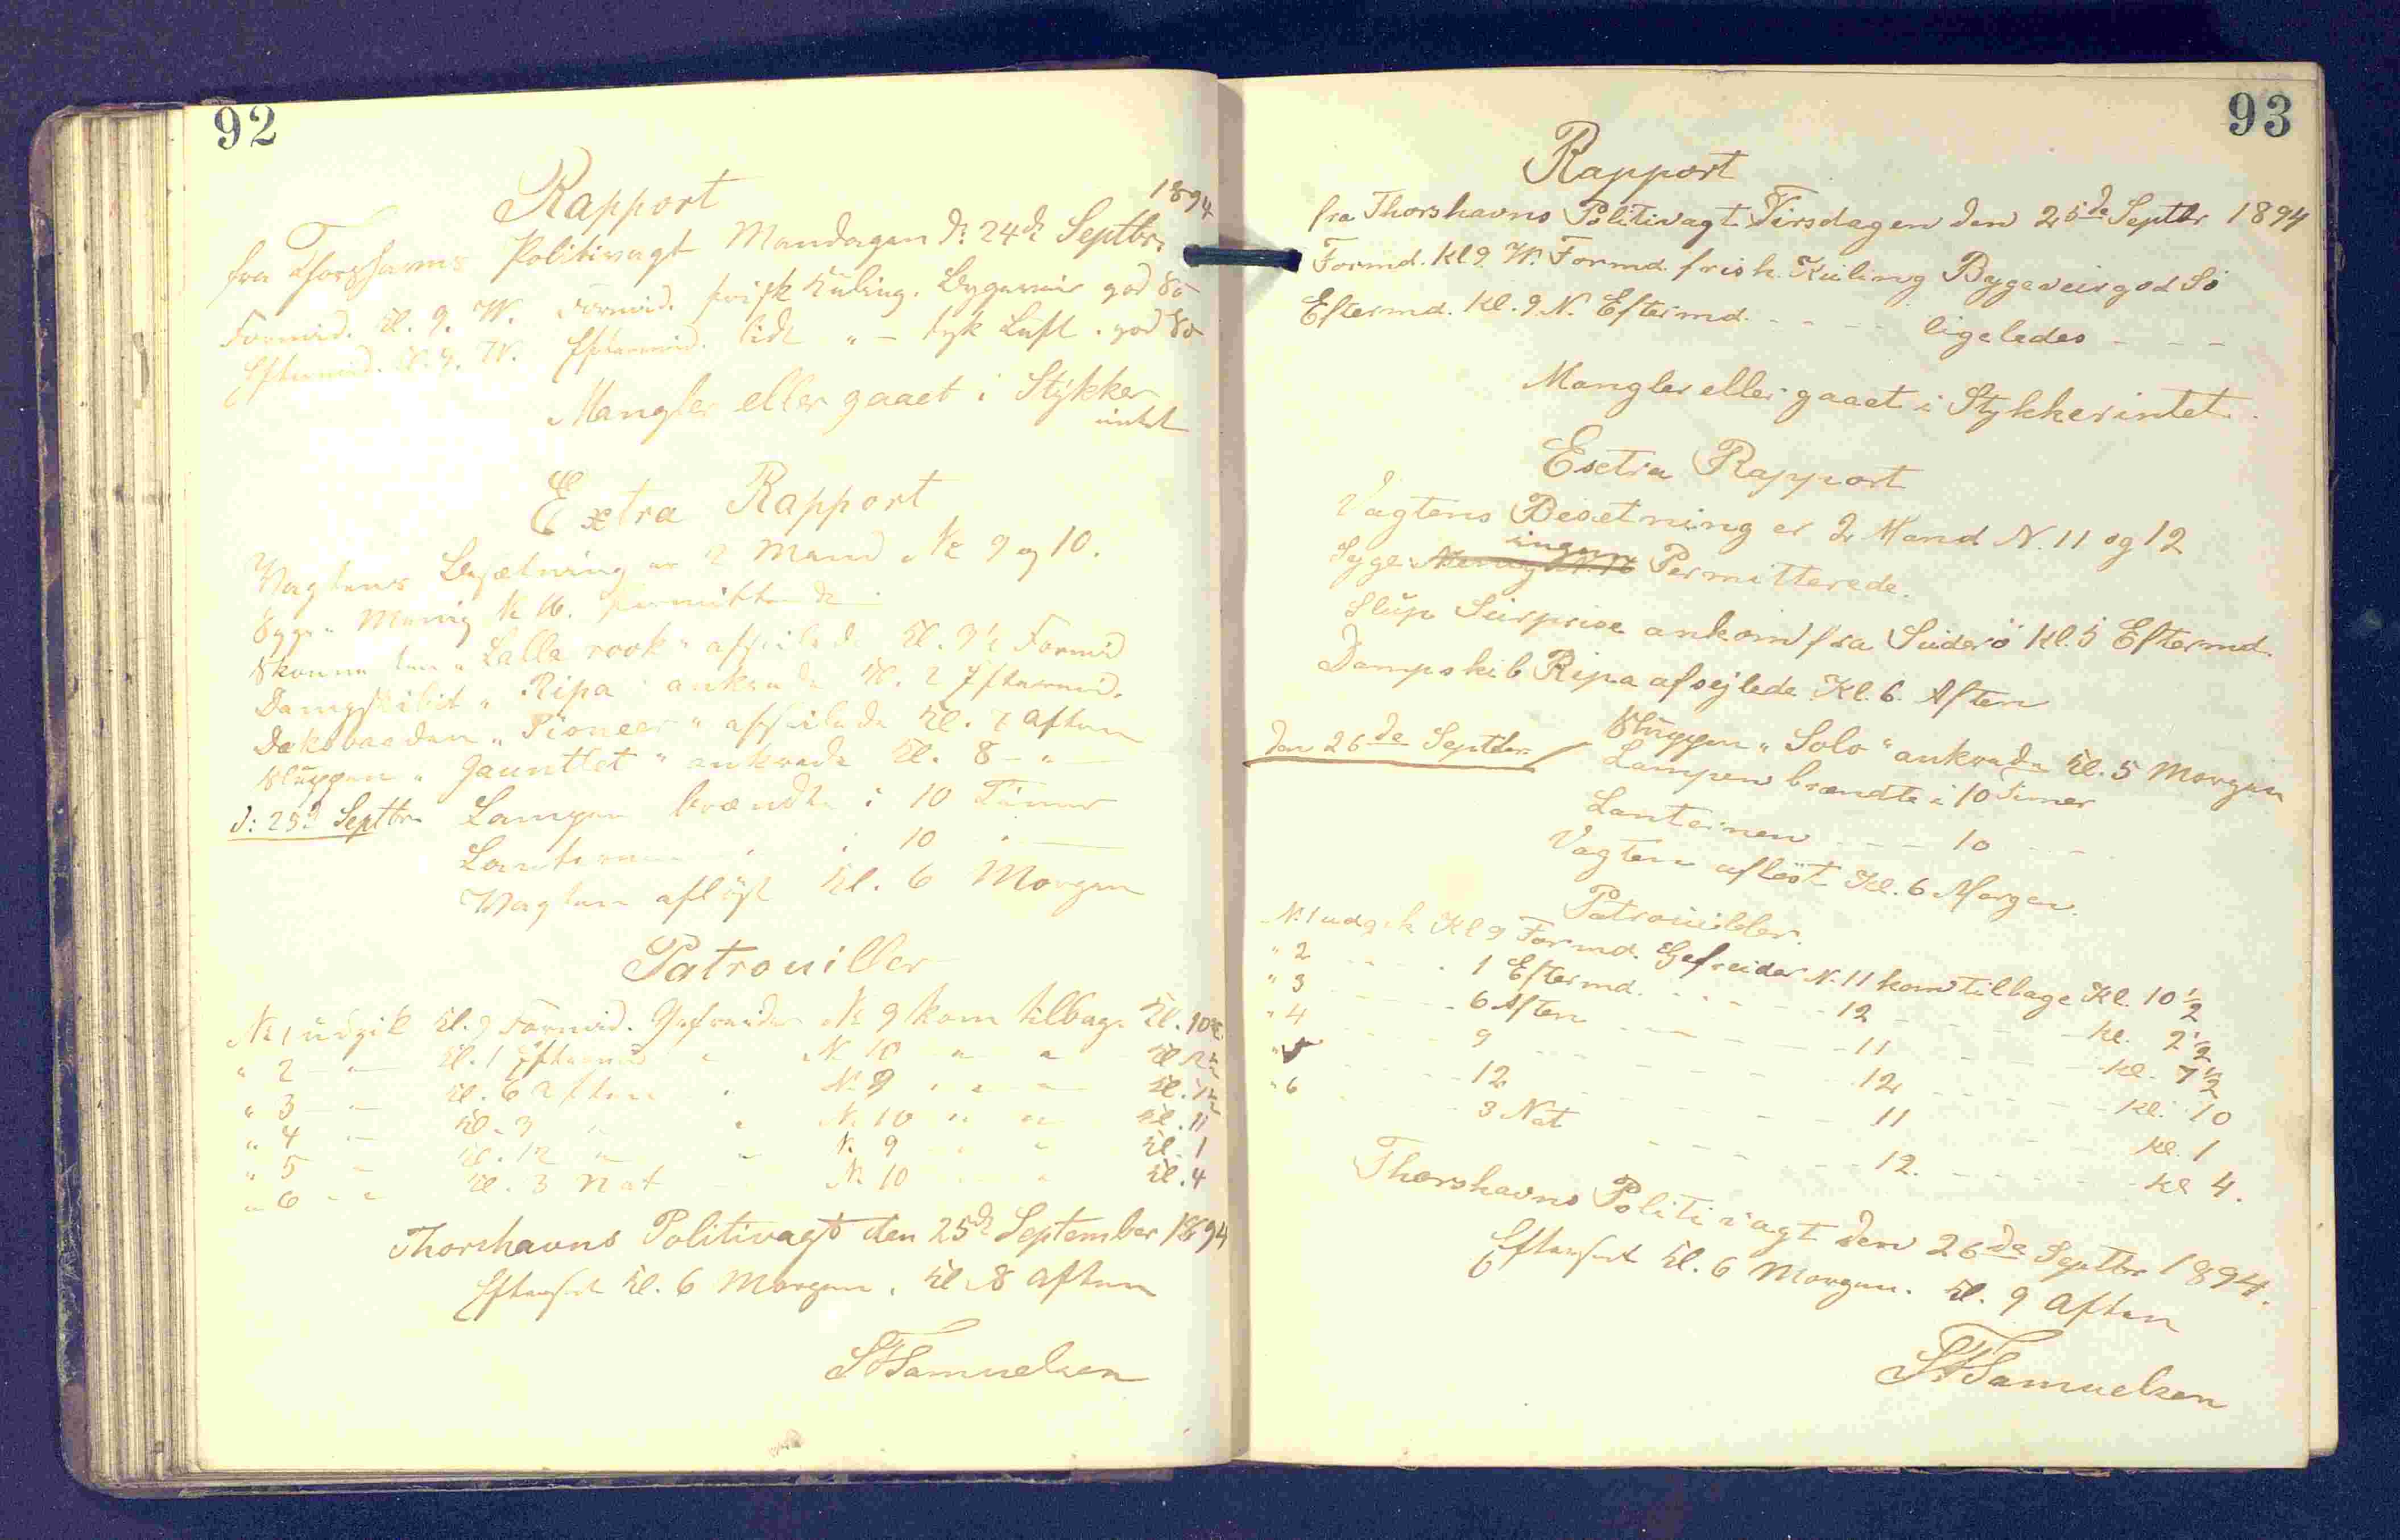 92
Rapport
1894
fra Thorshavns Politivagt Mandagen d: 24de Septbr.
Formid. Kl. 9. W. Formid. frisk Kuling. Bygeveir god Sö
Eftermid. Kl. 9. W. Eftermid. lidt " - tyk Luft. god Sö
Mangler eller gaaet i Stykker
intet
Extra Rapport
Vagtens Besætning er 2 Mand No 9 og 10.
Syge " No 16. Permitterede
Skonnerten "Lalla rook" afseilede Kl. 9½ Formid
Dampskibet "Ripa" ankrede Kl. 2 Eftermid.
Deksbaaden "Pioneer" afseilede Kl. 7 Aften
Sluppen "Gauntlet" ankrede Kl. 8 - " -
d: 25d Septbr. Lampen brændte i 10 Timer
Lanternen " " 10 "
Vagten aflöst Kl. 6 Morgen
Patrouiller
No 1 udgik Kl. 9 Formid. Gefreider No 9 kom tilbage Kl. 10½
" 2 - " - Kl. 1 Eftermid " N. 10 - " - " - Kl. 2½
" 3 - " - Kl. 6 Aften " N. 9 " " - Kl. 7½
" 4 " - Kl. 9 " " N. 10 " " - Kl. 11
" 5 " Kl. 12 " " N. 9 - " " Kl. 1
" 6 - " Kl. 3 Nat - N. 10 - " Kl. 4
Thorshavns Politivagt den 25de September 1894
Efterseet Kl. 6 Morgen. Kl. 8 Aften
SFSamuelsen
93
Rapport
fra Thorshavns Politivagt Tirsdagen den 25de Septbr 1894
Formd. Kl 9. W. Formd. frisk. Kuling Bygeveir god Sö
Eftermd. Kl. 9 N. Eftermd. - - - - ligeledes - - -
Mangler eller gaaet i Stykker intet.
Esctra Rapport
Vagtens Besætning er 2 Mand N. 11 og 12
ingen
Syge Permitterede.
Slup Surprise ankom fra Suderö Kl. 5 Eftermd.
Dampskib Ripa afsejlede Kl. 6. Aften
den 26de Septbr. Sluppen "Solo" ankrede Kl. 5 Morgen
Lampen brændte i 10 Timer
Lanternen - - - 10 - - -
Vagten aflöst Kl. 6 Morgen.
Patrouiller.
N. 1 udgik Kl 9 Formd. Gefreider N. 11 kom tilbage Kl. 10½
" 2 - - - 1 Eftermd. - - - 12 - - - Kl. 2½
" 3 - - - 6 Aften - - - 11 - - - Kl. 7½
" 4 - - - 9 - - - 12 - - - Kl. 10
" 5 - - - 12 - - - 11 - - - Kl. 1
" 6 - - - 3 Nat - - - 12. - - - Kl 4.
Thorshavns Politivagt den 26de Septbr 1894.
Efterseet Kl. 6 Morgen. Kl. 9 Aften
SFSamuelsen